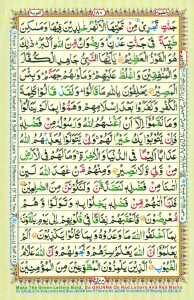 جَنّٰتٍ تَجْرِيْ مِنْ تَحْتِهَا الْاَنْهٰرُ خٰلِدِيْنَ فِيْهَا وَمَسٰكِنَ
طَيِّبَةً فِيْ جَنّٰتِ عَدْنٍ ؕ وَرِضْوَانٌ مِّنَ اللّٰهِ اَكْبَرُ ؕ ذٰلِكَ
هُوَ الْفَوْزُ الْعَظِيْمُ يٰۤاَيُّهَا النَّبِيُّ جَاهِدِ الْكُفَّارَ
وَالْمُنٰفِقِيْنَ وَاغْلُظْ عَلَيْهِمْ ؕ وَمَاْوٰىهُمْ جَهَنَّمُ ؕ وَبِئْسَ
الْمَصِيْرُ يَحْلِفُوْنَ بِاللّٰهِ مَا قَالُوْا ؕ وَلَقَدْ قَالُوْا كَلِمَةَ
الْكُفْرِ وَكَفَرُوْا بَعْدَ اِسْلَامِهِمْ وَهَمُّوْا بِمَا لَمْ يَنَالُوْا
وَمَا نَقَمُوْۤا اِلَّاۤ اَنْ اَغْنٰىهُمُ اللّٰهُ وَرَسُوْلُهٗ مِنْ فَضْلِهٖ
فَاِنْ يَّتُوْبُوْا يَكُ خَيْرًا لَّهُمْ وَاِنْ يَّتَوَلَّوْا يُعَذِّبْهُمُ اللّٰهُ
عَذَابًا اَلِيْمًا فِي الدُّنْيَا وَالْاٰخِرَةِ وَمَا لَهُمْ فِي الْاَرْضِ
مِنْ وَّلِيٍّ وَّلَا نَصِيْرٍ وَمِنْهُمْ مَّنْ عٰهَدَ اللّٰهَ لَئِنْ اٰتٰىنَا مِنْ
فَضْلِهٖ لَنَصَّدَّقَنَّ وَلَنَكُوْنَنَّ مِنَ الصّٰلِحِيْنَ فَلَمَّاۤ اٰتٰىهُمْ
مِّنْ فَضْلِهٖ بَخِلُوْا بِهٖ وَتَوَلَّوْا وَّهُمْ مُّعْرِضُوْنَ فَاَعْقَبَهُمْ
نِفَاقًا فِيْ قُلُوْبِهِمْ اِلٰى يَوْمِ يَلْقَوْنَهٗ بِمَاۤ اَخْلَفُوا اللّٰهَ
مَا وَعَدُوْهُ وَبِمَا كَانُوْا يَكْذِبُوْنَ اَلَمْ يَعْلَمُوْۤا اَنَّ اللّٰهَ يَعْلَمُ
سِرَّهُمْ وَنَجْوٰىهُمْ وَاَنَّ اللّٰهَ عَلَّامُ الْغُيُوْبِ
اَلَّذِيْنَ يَلْمِزُوْنَ الْمُطَّوِّعِيْنَ مِنَ الْمُؤْمِنِيْنَ